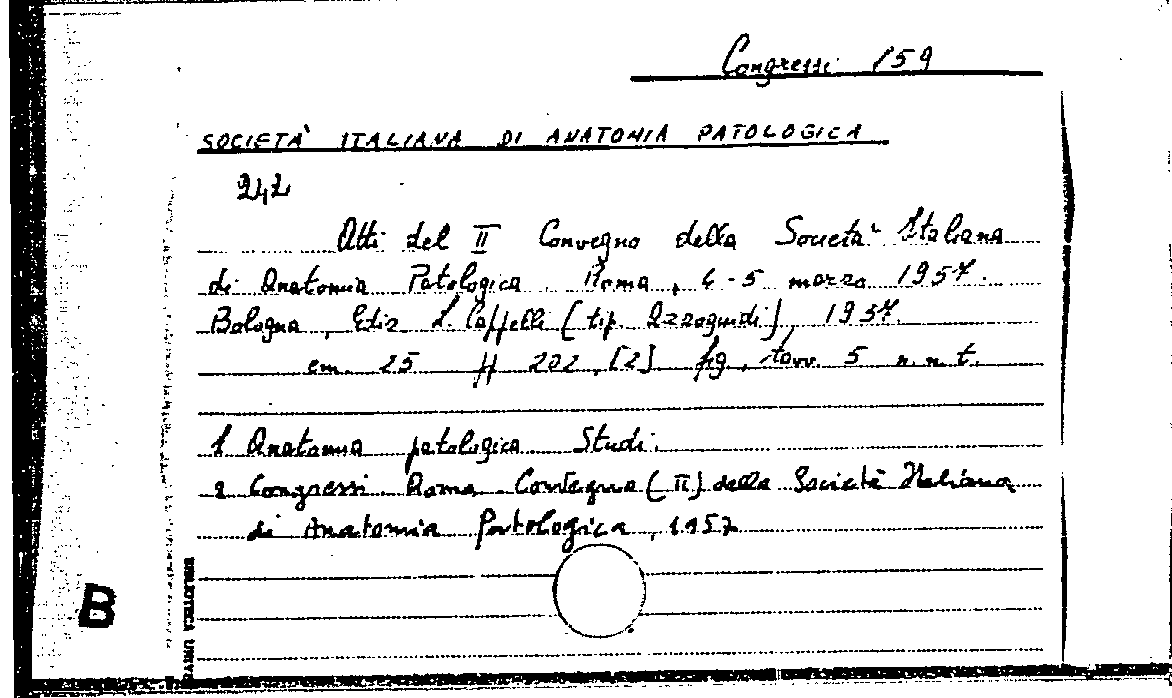 Congressi 159
SOCIETA' ITALIANA DI ANATOMIA PATOLOGICA
242
Atti del II Convegno della Societa' Italiana
di Anatomia Patologica. Roma, 4-5 marzo 1957.
Bologna, Ediz. L. Cappelli (tip. Azzoguidi), 1957.
cm. 25 pp 202, [2] fig., tavv. 5 n. n. t.
1 Anatomia patologica Studi.
2 Congressi Roma Convegno (II) della Società Italiana
di Anatomia Patologica, 1957
B
BIBLIOTECA